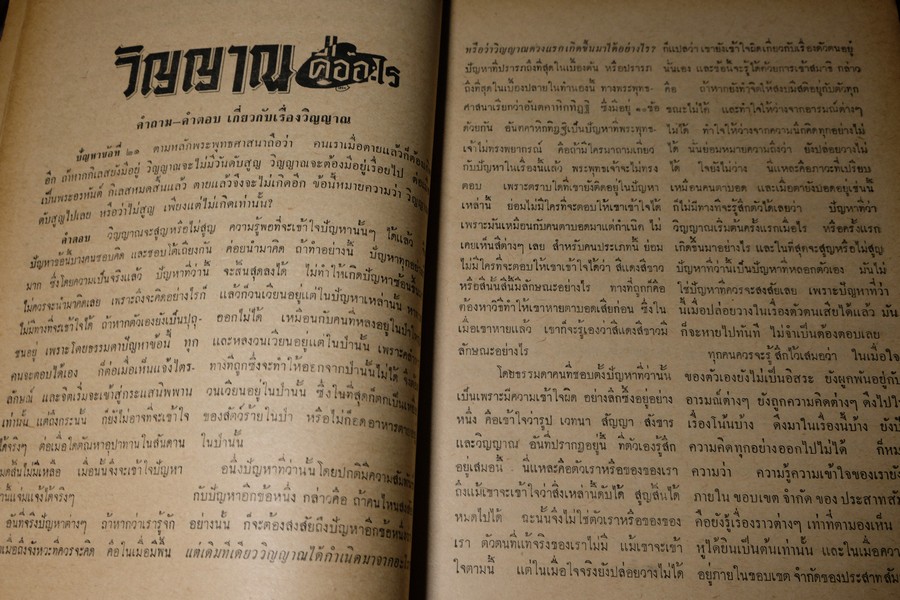 วิญญาณ คืออะไร
คำถาม—คำตอบ เกี่ยวกับเรื่องวิญญาณ
ปัญหาข้อที่ ๒๑ ตามหลักพระพุทธศาสนาถือว่า คนเราเมื่อตายแล้วก็ต้องเกิด
อีก ถ้าหากกิเลสยังมีอยู่ วิญญาณจะไม่มีวันดับสูญ วิญญาณจะต้องมีอยู่เรื่อยไป
เป็นพระอรหันต์ กิเลสหมดสิ้นแล้ว ตายแล้วจึงจะไม่เกิดอีก ข้อนี้หมายความว่า
ดับสูญไปเลย หรือว่าไม่สูญ เพียงแต่ไม่เกิดเท่านั้น?
คำตอบ วิญญาณจะสูญหรือไม่สูญ
ปัญหาข้อนี้บางคนชอบคิด และชอบโต้เถียงกัน
มาก ซึ่งโดยความเป็นจริงแล้ว ปัญหาที่ว่านี้
ไม่ควรจะนำมาคิดเลย เพราะถึงจะคิดอย่างไรก็
ไม่มีทางที่จะเข้าใจได้ ถ้าหากตัวเองยังเป็นปุถุ-
ชนอยู่ เพราะโดยธรรมดาปัญหาข้อนี้ ทุก
คนจะตอบได้เอง ก็ต่อเมื่อเห็นแจ้งไตร-
ลักษณ์ และจิตเริ่มจะเข้าสู่กระแสนิพพาน
เท่านั้น แต่ถึงกระนั้น ก็ยังไม่อาจที่จะเข้าใจ
ได้จริงๆ ต่อเมื่อใดตัณหาอุปาทานในสันดาน
หมดสิ้นไม่มีเหลือ เมื่อนั้นจึงจะเข้าใจปัญหา
นี้แจ่มแจ้งได้จริงๆ
อันที่จริงปัญหาต่างๆ ถ้าหากว่าเรารู้จัก
ความรู้พอที่จะเข้าใจปัญหานั้นๆ ได้แล้ว
ค่อยนำมาคิด ถ้าทำอย่างนี้ ปัญหาทุกอย่าง
จะสิ้นสุดลงได้ ไม่ทำให้เกิดปัญหาซ้อนขึ้น
แล้วก็วนเวียนอยู่แต่ในปัญหาเหล่านั้น
ออกไม่ได้ เหมือนกับคนที่หลงอยู่ในป่า
และหลงวนเวียนอยู่แต่ในป่านั้น
ทางที่ถูกซึ่งจะทำให้ออกจากป่านั้นไม่ได้
วนเวียนอยู่ในป่านั้น ซึ่งในที่สุดก็ตกเป็นเหยื่อ
ของสัตว์ร้ายในป่า หรือไม่ก็อดอาหารตาย
ในป่านั้น
อนึ่งปัญหาที่ว่านั้นโดยปกติมีความสัมพันธ์
กับปัญหาอีกข้อหนึ่ง กล่าวคือ ถ้าคนไหนสงสัย
อย่างนั้น ก็จะต้องสงสัยถึงปัญหาอีกข้อหนึ่ง
แต่เดิมทีเดียววิญญาณได้กำเนิดมาจากอะไร
หรือว่าวิญญาณดวงแรกเกิดขึ้นมาได้อย่างไร?
ปัญหาที่ปรารภถึงที่สุดในเบื้องต้น หรือปรารภ
ถึงที่สุดในเบื้องปลายในทำนองนี้ ทางพระพุทธ-
ศาสนาเรียกว่าอันตคาหิกทิฏฐิ ซึ่งมีอยู่ ๑๐ ข้อ
ด้วยกัน อันตคาหิกทิฏฐิเป็นปัญหาที่พระพุทธ-
เจ้าไม่ทรงพยากรณ์ คือถ้ามีใครมาถามเกี่ยว
กับปัญหาในเรื่องนี้แล้ว พระพุทธเจ้าจะไม่ทรง
ตอบ เพราะตราบใดที่เขายังคิดอยู่ในปัญหา
เหล่านี้ ย่อมไม่มีใครที่จะตอบให้เขาเข้าใจได้
เพราะมันเหมือนกับคนตาบอดมาแต่กำเนิด ไม่
เคยเห็นสีต่างๆ เลย สำหรับคนประเภทนี้ ย่อม
ไม่มีใครที่จะตอบให้เขาเข้าใจได้ว่า สีแดงสีขาว
หรือสีนั้นสีนี้มีลักษณะอย่างไร ทางที่ถูกก็คือ
ต้องหาวิธีทำให้เขาหายตาบอดเสียก่อน ซึ่งใน
เมื่อเขาหายแล้ว เขาก็จะรู้เองว่าสีแดงสีขาวมี
ลักษณะอย่างไร
โดยธรรมดาคนที่ชอบตั้งปัญหาที่ว่านั้น
เป็นเพราะมีความเข้าใจผิด อย่างลึกซึ้งอยู่อย่าง
หนึ่ง คือเข้าใจว่ารูป เวทนา สัญญา สังขาร
และวิญญาณ อันที่ปรากฏอยู่นี้ ที่ตัวเองรู้สึก
อยู่เสมอนี้ นี่แหละคือตัวเราหรือของของเรา
ถึงแม้เขาจะเข้าใจว่าสิ่งเหล่านี้ดับได้ สูญสิ้นได้
หมดไปได้ ฉะนั้นจึงไม่ใช่ตัวเราหรือของของ
เรา ตัวตนที่แท้จริงของเราไม่มี แม้เขาจะเข้า
ใจตามนี้ แต่ในเมื่อใจจริงยังปล่อยวางไม่ได้
ก็แปลว่าเขายังเข้าใจผิดเกี่ยวกับเรื่องตัวตนอยู่
นั่นเอง และข้อนี้จะรู้ได้ด้วยการเข้าสมาธิ กล่าว
คือ ถ้าหากยังทำจิตให้สงบมีสติอยู่กับตัวทุก
ขณะไม่ได้ และทำให้ว่างจากอารมณ์ต่างๆ
ไม่ได้ ทำให้ว่างจากความนึกคิดทุกอย่างไม่
ได้ นั่นย่อมหมายความถึงว่า ยังปล่อยวางไม่
ได้ ใจยังไม่ว่าง นี่แหละคือภาวะที่เปรียบ
เหมือนคนตาบอด และเมื่อตายังบอดอยู่เช่นนี้
ก็ไม่มีทางที่จะรู้สึกตัวได้เลยว่า ปัญหาที่ว่า
วิญญาณเริ่มต้นครั้งแรกเมื่อไร หรือครั้งแรก
เกิดขึ้นมาอย่างไร และในที่สุดจะสูญหรือไม่สูญ
ปัญหาที่ว่านี้เป็นปัญหาที่หลอกตัวเอง มันไม่
ใช่ปัญหาที่ควรจะสงสัยเลย เพราะปัญหาที่ว่า
นี้เมื่อปล่อยวางในเรื่องตัวตนเสียได้แล้ว มัน
ก็จะหายไปทันที ไม่จำเป็นต้องตอบเลย
ทุกคนควรจะรู้สึกไว้เสมอว่า ในเมื่อใจ
ของตัวเองยังไม่เป็นอิสระ ยังผูกพันอยู่กับ
อารมณ์ต่างๆ ยังถูกความคิดต่างๆ ดึงไปใน
เรื่องโน้นบ้าง ดึงมาในเรื่องนี้บ้าง
ความคิดทุกอย่างออกไปไม่ได้
ความว่า ความรู้ความเข้าใจของเรายัง
ภายใน ขอบเขต จำกัด ของ ประสาทสัม
คือยังรู้เรื่องราวต่างๆ เท่าที่ตามองเห็น
หูได้ยินเป็นต้นเท่านั้น และในเมื่อความ
อยู่ภายในขอบเขต จำกัดของประสาทสัม